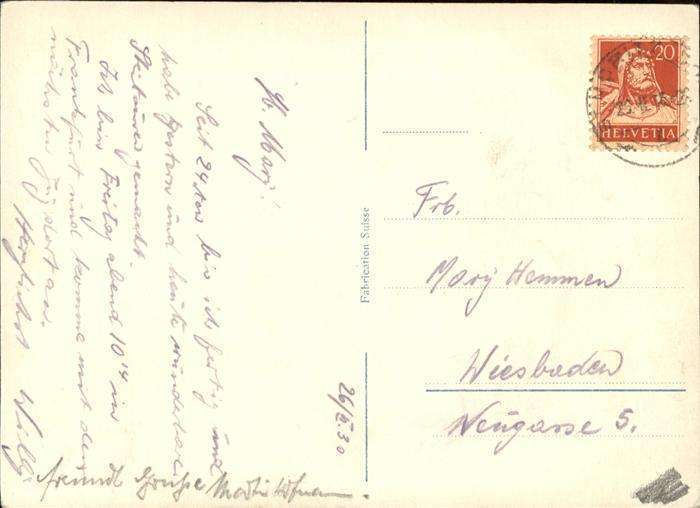 Lb. Mary!
Seit 24ten bin ich fertig und
habe gestern und heute wunderbare
Skitouren gemacht.
Ich bin Freitag abend 10¹⁴ in
Frankfurt und komme mit dem
nächsten Zug dort an.
Herzlichst Willy
freundl Grüße Martin
26/2.30
Fabrication Suisse
20
HELVETIA
Frl.
Mary Hemmen
Wiesbaden
Neugasse 5.